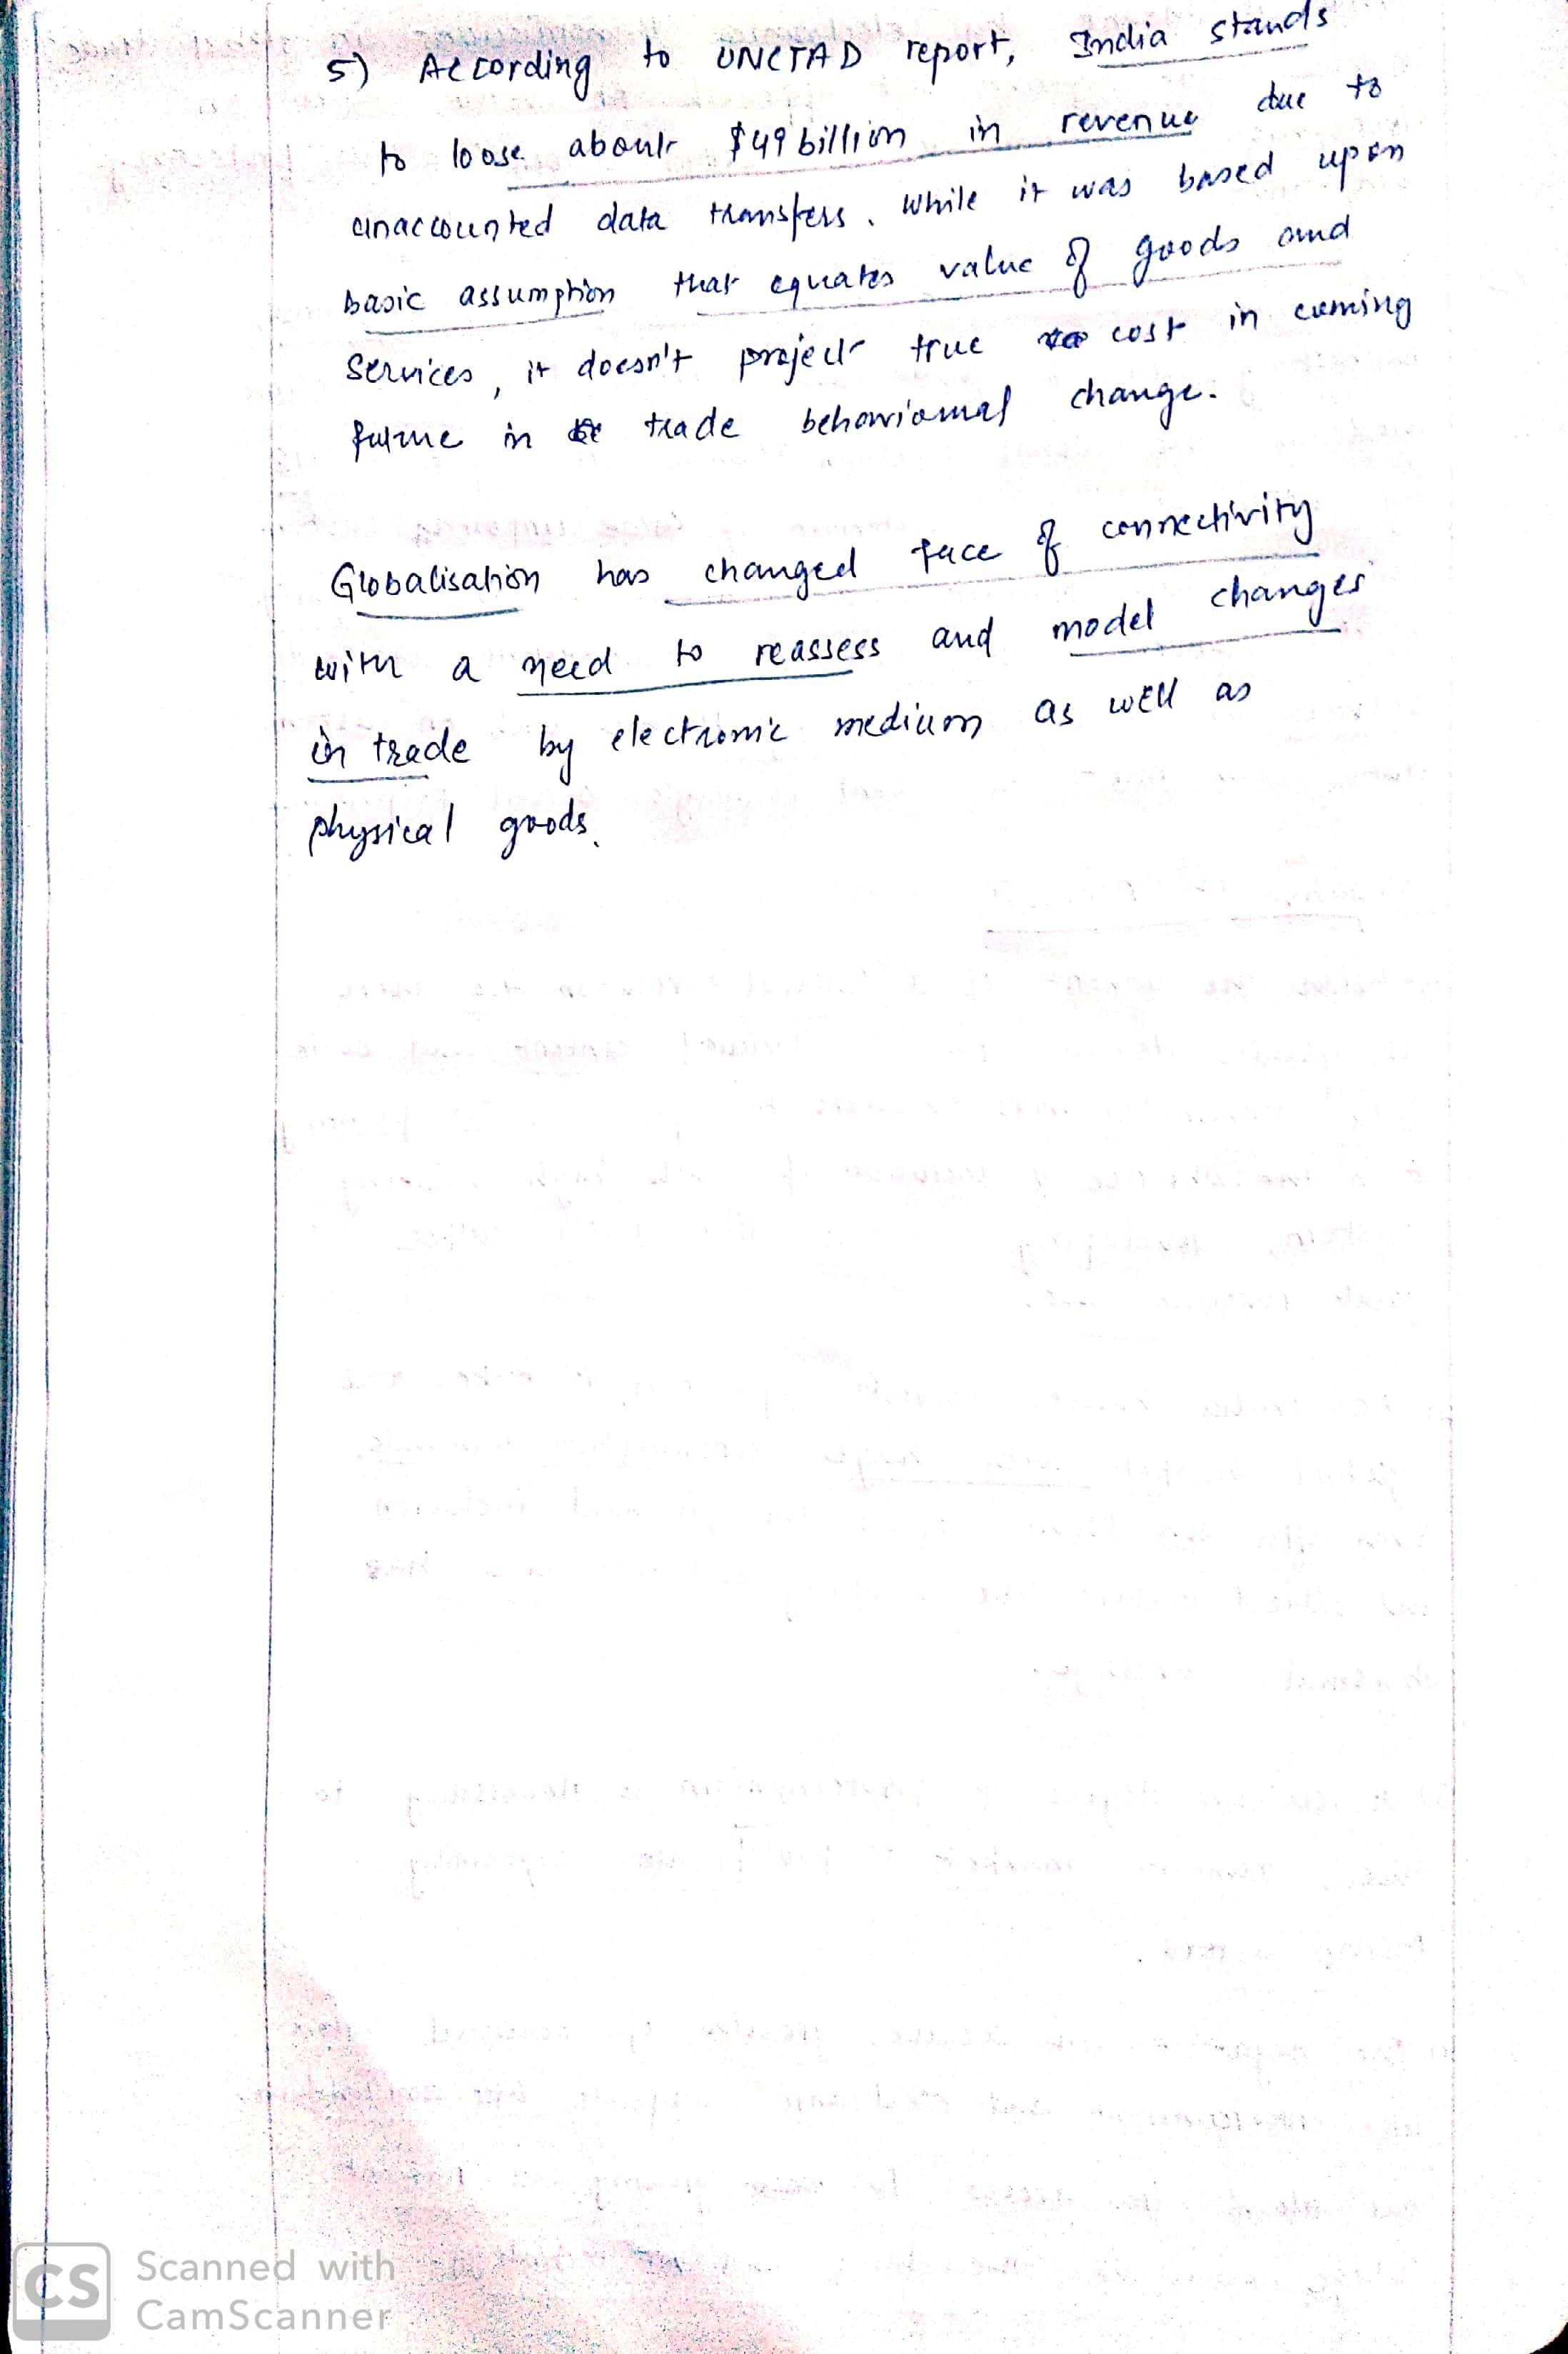 5) According to UNCTAD report, India stands
to loose about $49 billion in revenue due to
unaccounted data transfers. While it was based upon
basic assumption that equates value of goods and
services, it doesn't project true cost in coming
future in trade behavioural change.
Globalisation has changed face of connectivity
with a need to reassess and model changes
in trade by electronic medium as well as
physical goods.
CS Scanned with
CamScanner